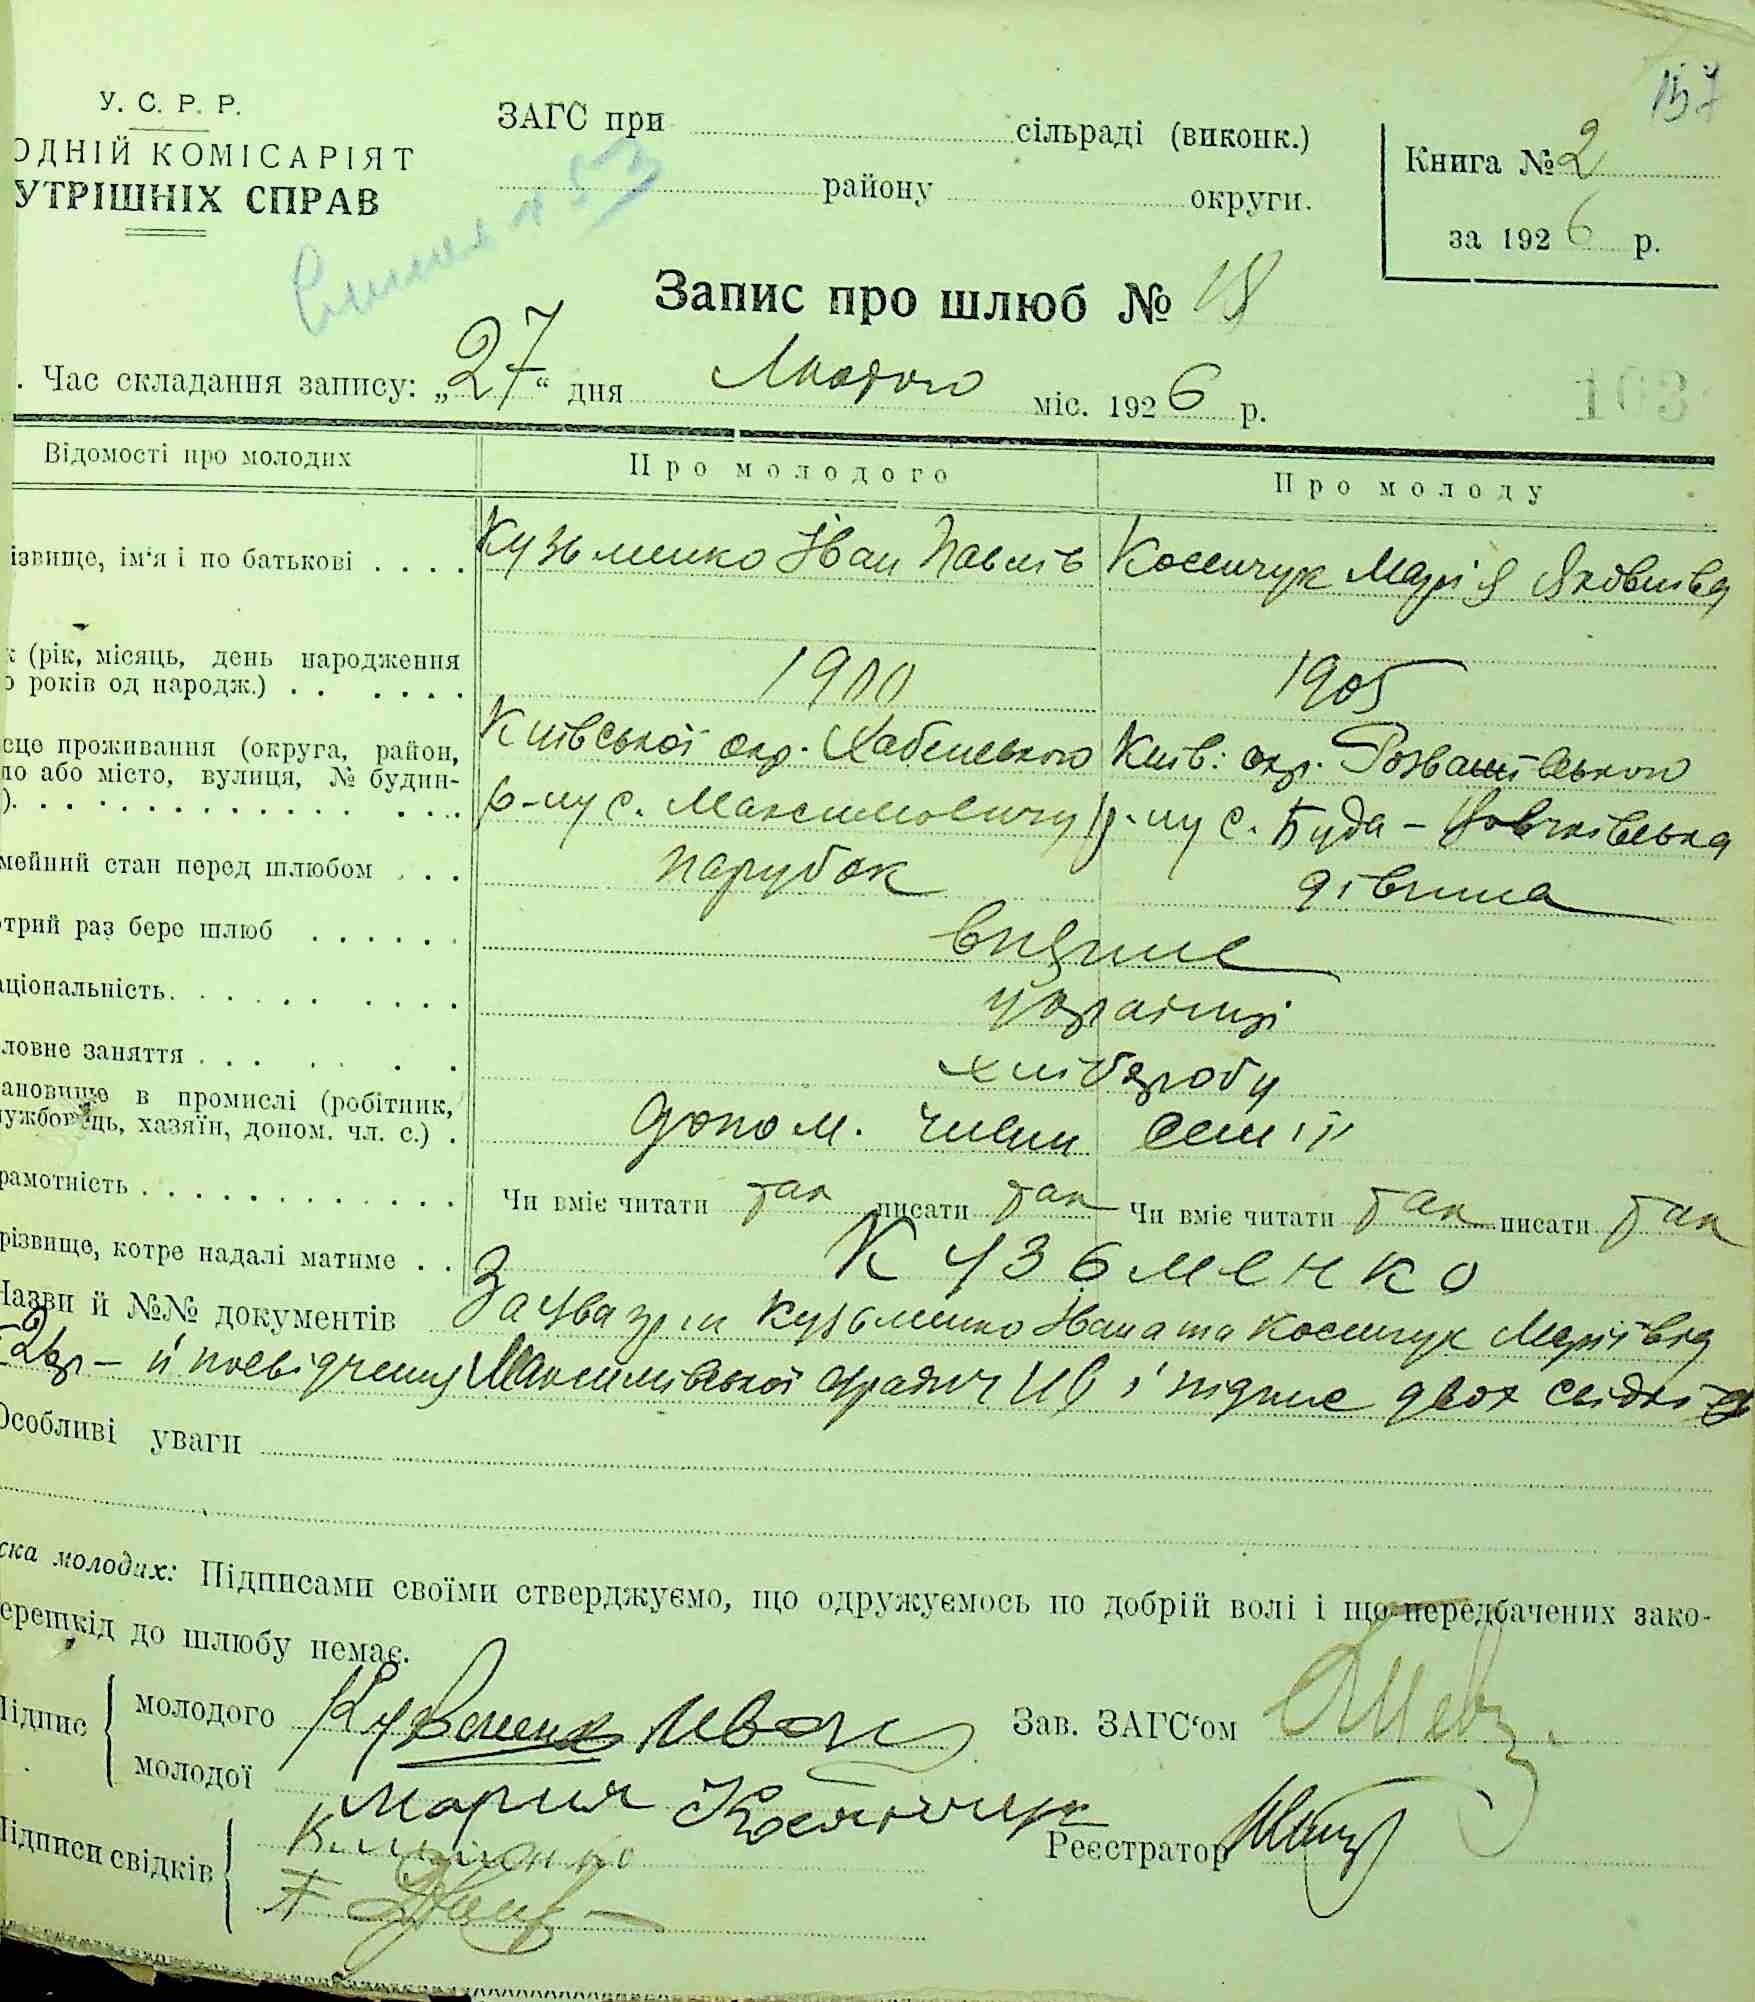 157
У. С. Р. Р.
ОДНІЙ КОМІСАРІЯТ
УТРІШНІХ СПРАВ
ЗАГС при сільраді (виконк.)
району округи.
Книга № 2
за 1926 р.
№ 53
Запис про шлюб № 18
. Час складання запису: „27“ дня Лютого міс. 1926 р.
103
Відомості про молодих Про молодого Про молоду
ізвище, ім'я і по батькові . . . . Кузьменко Іван Павлів Косенчук Марія Яковлівна
к (рік, місяць, день народження
о років од народж.) . . . . . . 1900 1905
Київської окр. Хабенського Київ: окр. Розважівського
сце проживання (округа, район,
ло або місто, вулиця, № будин-
). . . . . . . . . . . . . . . р-ну с. Максимовичу р-ну с. Буда-Вовчківська
мейний стан перед шлюбом . . . парубок дівчина
отрий раз бере шлюб . . . . . . вперше
аціональність. . . . . . . . . . українці
ловне заняття . . . . . . . хлібороби
ановище в промислі (робітник,
ужбовець, хазяїн, допом. чл. с.) . допом. члени сем'ії
рамотність . . . . . . . . . . . . Чи вміє читати так писати так Чи вміє читати так писати так
різвище, котре надалі матиме . . Кузьменко
Назви й №№ документів Заява гр.н Кузьменко Івана та Косенчук Марії від
й посвідчення і підпис двох свідків
Особливі уваги
ска молодих: Підписами своїми стверджуємо, що одружуємось по добрій волі і що передбачених зако-
ерешкід до шлюбу немає.
Підпис молодого Кузьменк Иван Зав. ЗАГС'ом
молодої Мария Косинчук
Підписи свідків Реєстратор